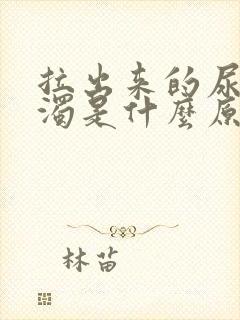 拉出来的尿
浊是什麼原
林苗